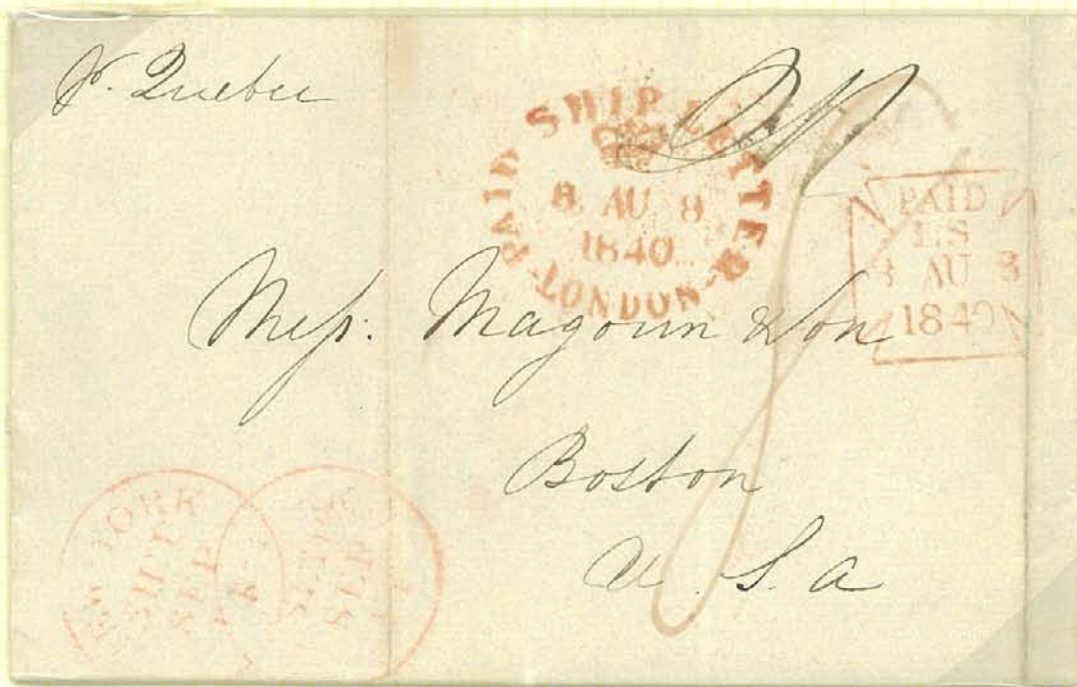 pr. Quebec
PAID SHIP LETTER
8 AU 8
1840
LONDON
PAID
LS
8 AU 8
1840
Mess: Magoun & Son
Boston
U. S. A
NEW YORK
SHIP
SEP
SHIP
SEP